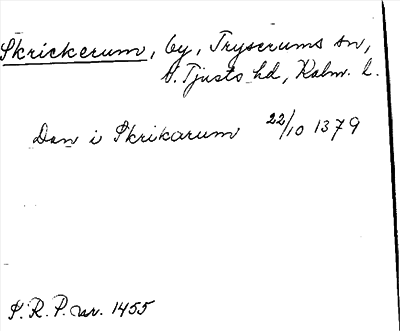 Skrickerum, by, Tryserums sn,
S. Tjusts hd, Kalm. l.
Dan i Skrikarum 22/10 1379
S.R.P. nr. 1455